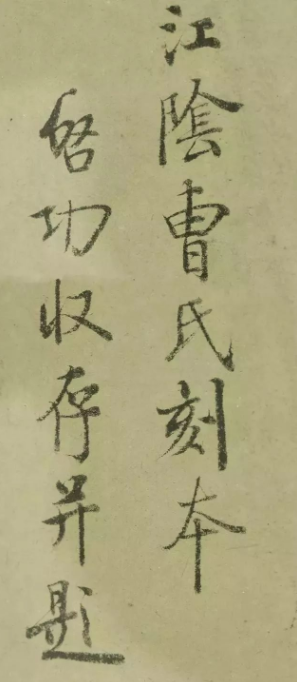 江陰曹氏刻本
啓功收存并題